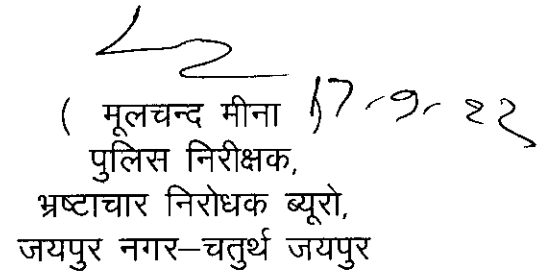 ( मूलचन्द मीना ) 17-9-22
पुलिस निरीक्षक,
भ्रष्टाचार निरोधक ब्यूरो,
जयपुर नगर–चतुर्थ जयपुर